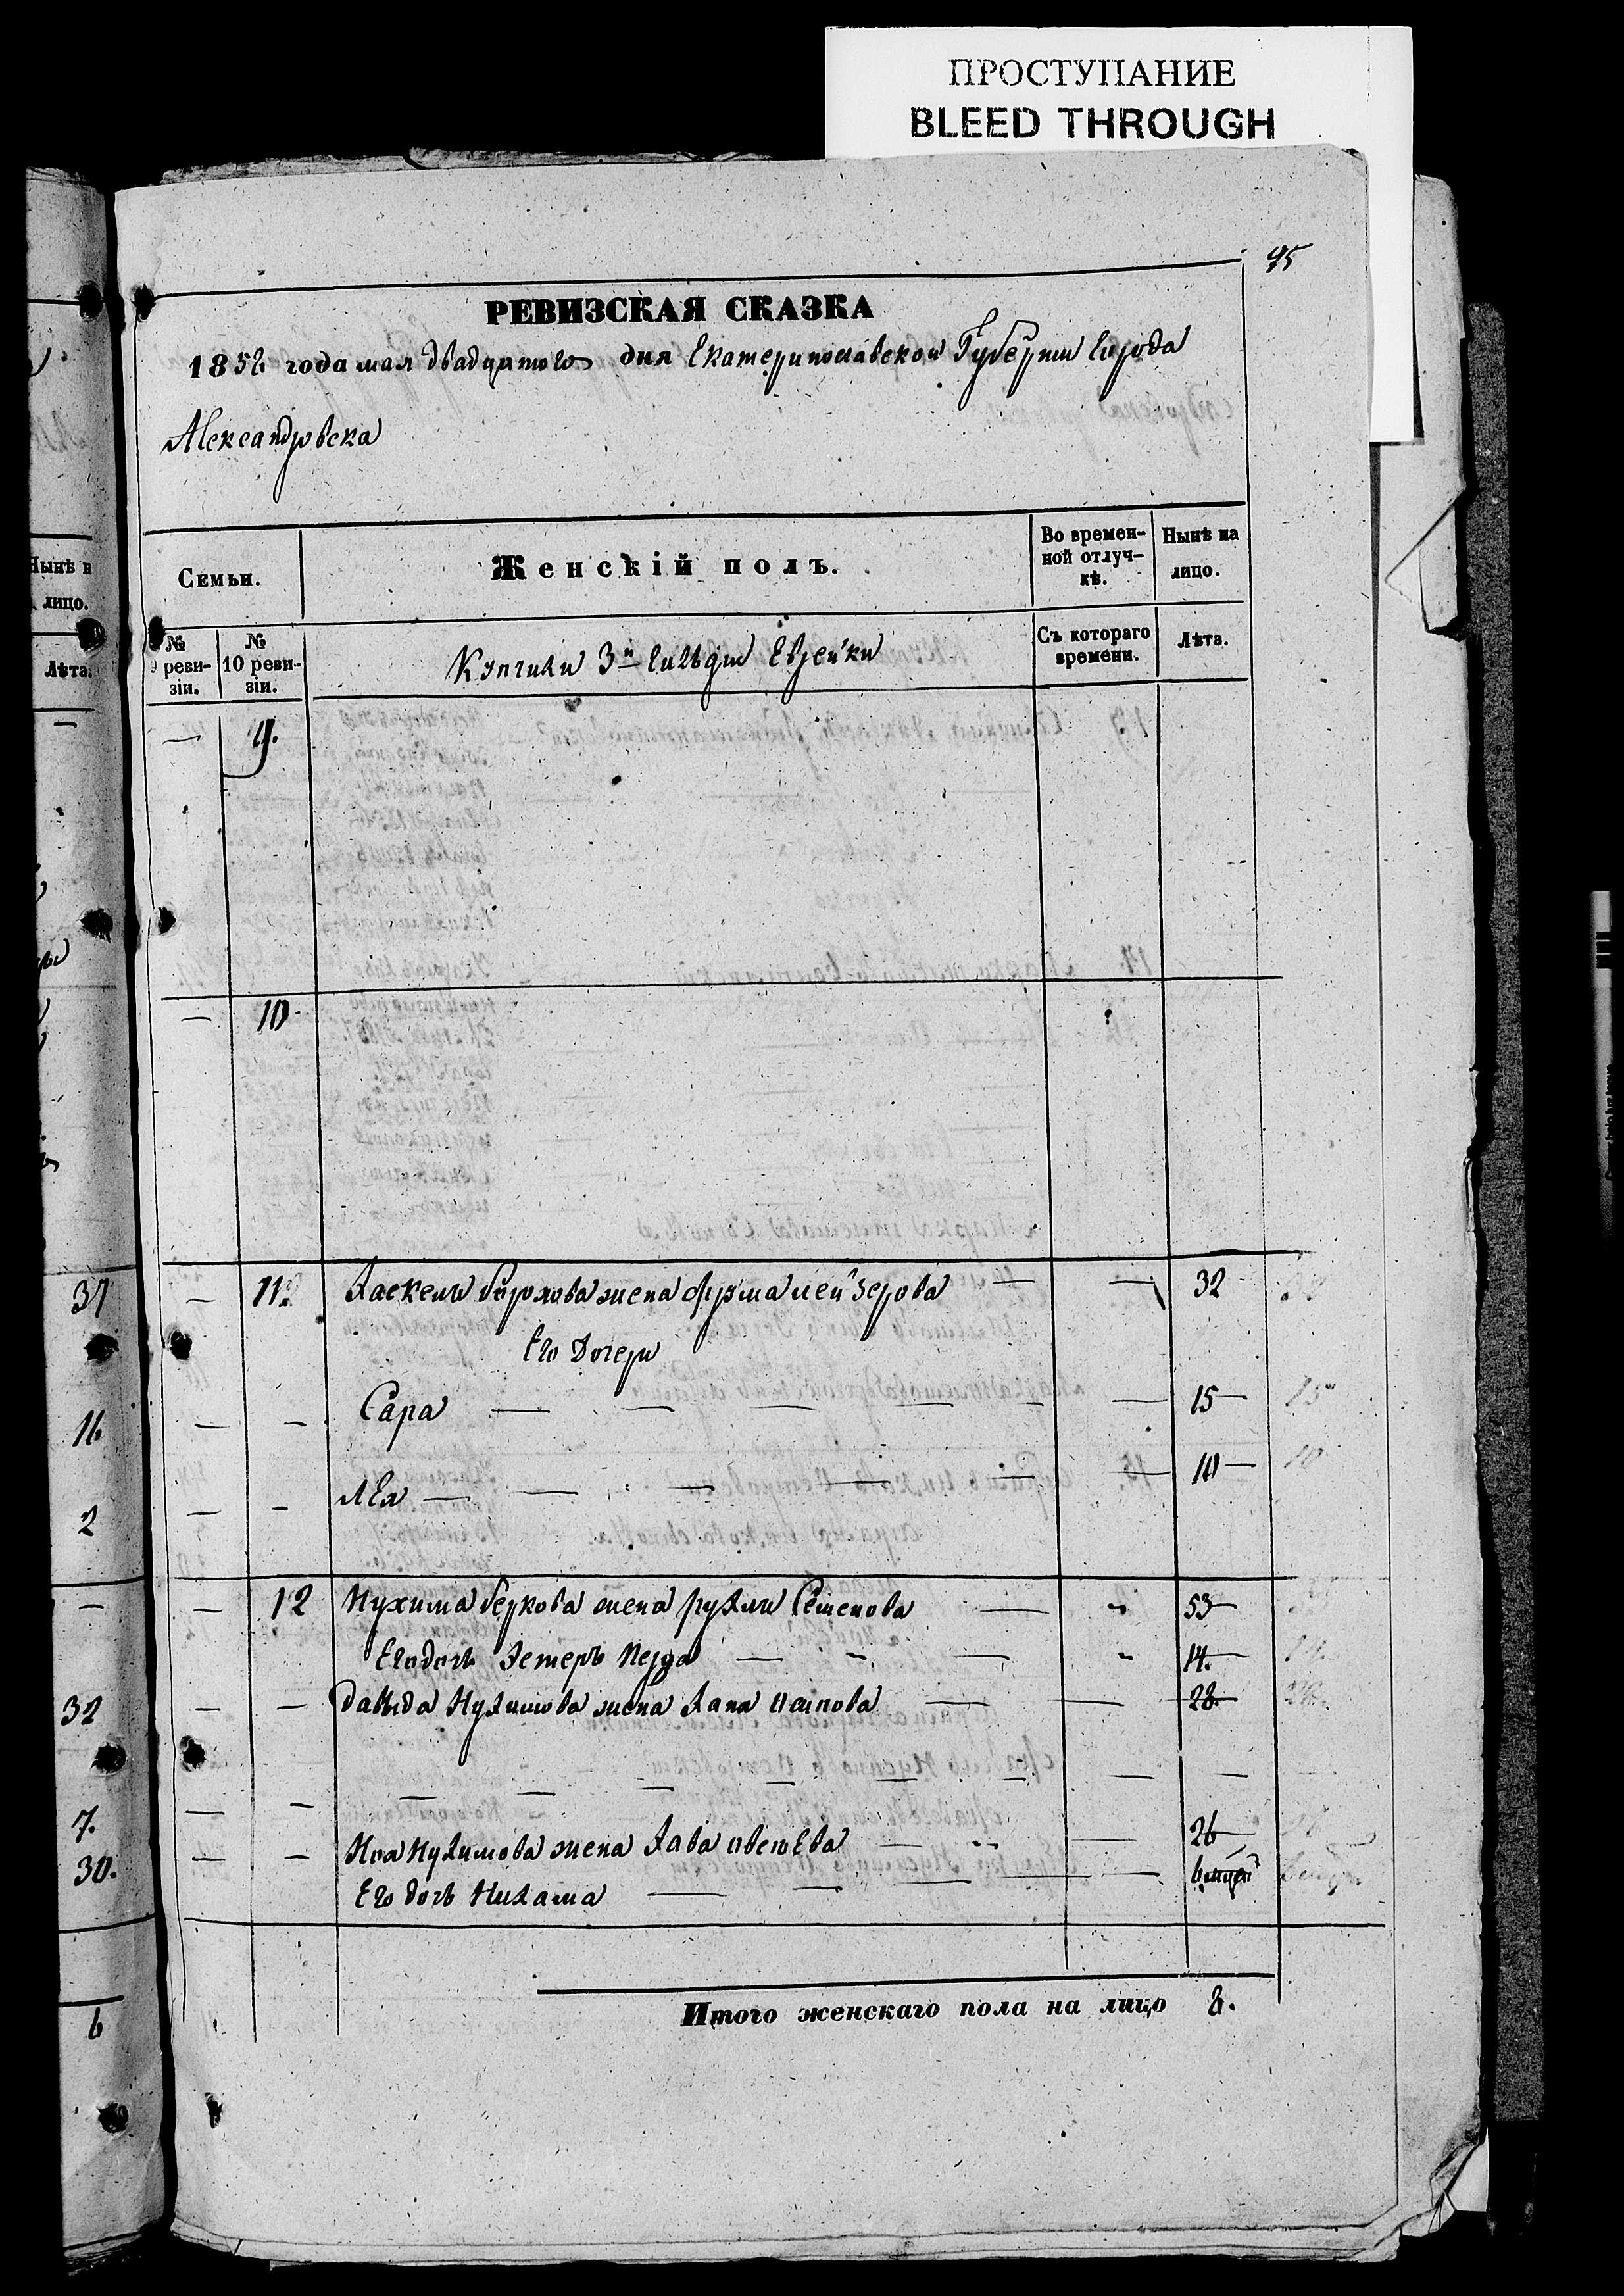 ПРОСТУПАНИЕ
BLEED THROUGH
95
РЕВИЗСКАЯ СКАЗКА
1858 года мая двадцатого дня Екатеринославской Губернии города
Александровска
Нынѣ н
лицо.
Лѣта.
Семьи.
Женскій полъ.
Во времен-
ной отлуч-
кѣ.
Нынѣ на
лицо.
№
9 реви-
зіи.
№
10 реви-
зіи.
Купчихи 3й гильдіи Еврейки
Съ котораго
времени.
Лѣта.
— 9.
— 10
37
— 11 Хаскеля Борохова жена Фрума Лейзерова — — 32
Его Дочери
16
— — Сара — — — — — — 15
2
— — Лея — — — — — — 10
— 12 Нухима беркова жена рухля Семенова — 53
Его дочь Эстеръ 14.
32
— — Давыда Нухимова жена Хана — — 28
7.
30.
— — Ноя Нухимова жена Хава — 26
Его дочь Нихама — — — — 6
6
Итого женскаго пола на лицо 8.